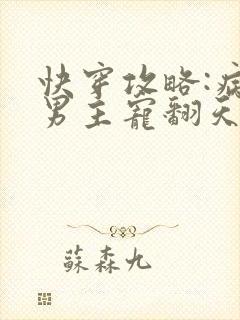 快穿攻略:病
男主寵翻天
蘇森九